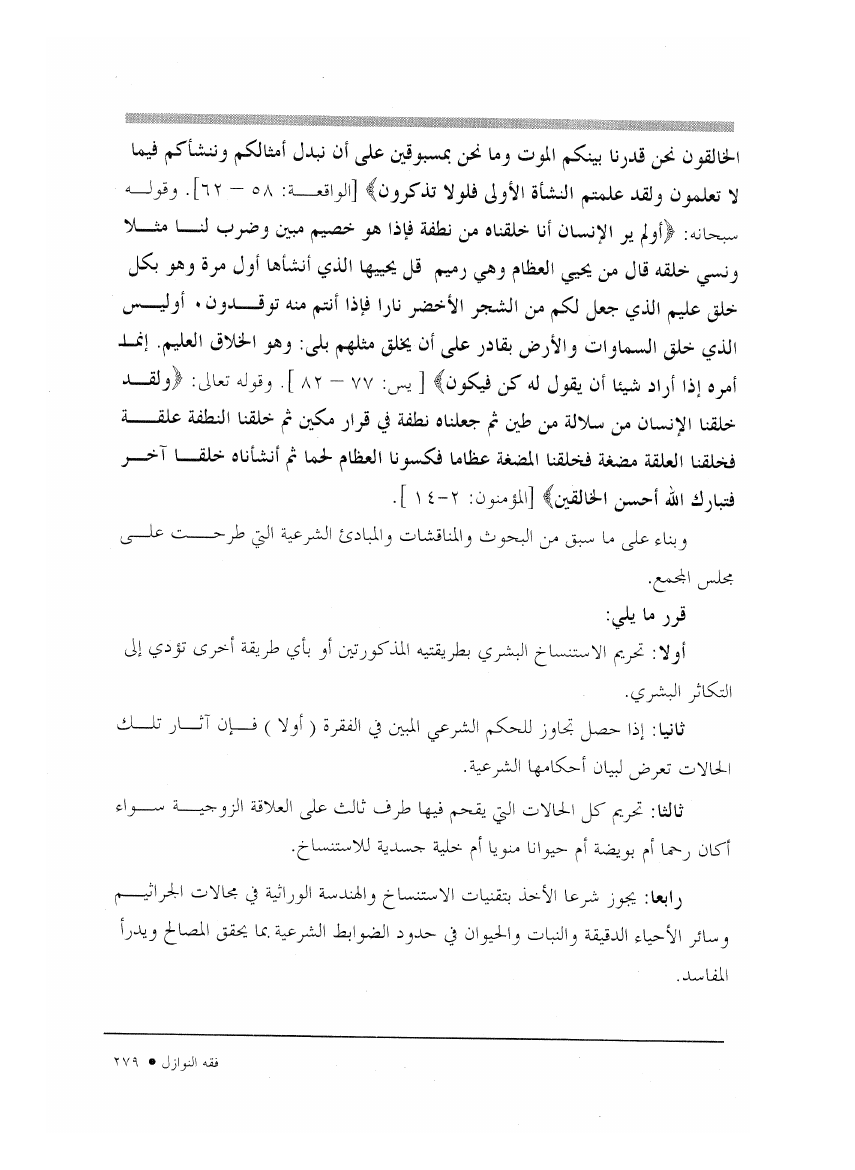 الخالقون نحن قدرنا بينكم الموت وما نحن بمسبوقين على أن نبدل أمثالكم وننشأكم فيما
لا تعلمون ولقد علمتم النشأة الأولى فلولا تذكرون﴾ [الواقعة: ٥٨ – ٦٢]. وقوله
سبحانه: ﴿أولم ير الإنسان أنا خلقناه من نطفة فإذا هو خصيم مبين وضرب لنا مثلا
ونسي خلقه قال من يحيي العظام وهي رميم قل يحييها الذي أنشأها أول مرة وهو بكل
خلق عليم الذي جعل لكم من الشجر الأخضر نارا فإذا أنتم منه توقدون ٠ أوليس
الذي خلق السماوات والأرض بقادر على أن يخلق مثلهم بلى: وهو الخلاق العليم. إنما
أمره إذا أراد شيئا أن يقول له كن فيكون﴾ [ يس: ٧٧ – ٨٢ ]. وقوله تعالى: ﴿ولقد
خلقنا الإنسان من سلالة من طين ثم جعلناه نطفة في قرار مكين ثم خلقنا النطفة علقة
فخلقنا العلقة مضغة فخلقنا المضغة عظاما فكسونا العظام لحما ثم أنشأناه خلقا آخر
فتبارك الله أحسن الخالقين﴾ [المؤمنون: ٢-١٤ ].
وبناء على ما سبق من البحوث والمناقشات والمبادئ الشرعية التي طرحت على
مجلس المجمع.
قرر ما يلي:
أولا: تحريم الاستنساخ البشري بطريقتيه المذكورتين أو بأي طريقة أخرى تؤدي إلى
التكاثر البشري.
ثانيا: إذا حصل تجاوز للحكم الشرعي المبين في الفقرة ( أولا ) فإن آثار تلك
الحالات تعرض لبيان أحكامها الشرعية.
ثالثا: تحريم كل الحالات التي يقحم فيها طرف ثالث على العلاقة الزوجية سواء
أكان رحما أم بويضة أم حيوانا منويا أم خلية جسدية للاستنساخ.
رابعا: يجوز شرعا الأخذ بتقنيات الاستنساخ والهندسة الوراثية في مجالات الجراثيم
وسائر الأحياء الدقيقة والنبات والحيوان في حدود الضوابط الشرعية بما يحقق المصالح ويدرأ
المفاسد.
فقه النوازل • ٢٧٩